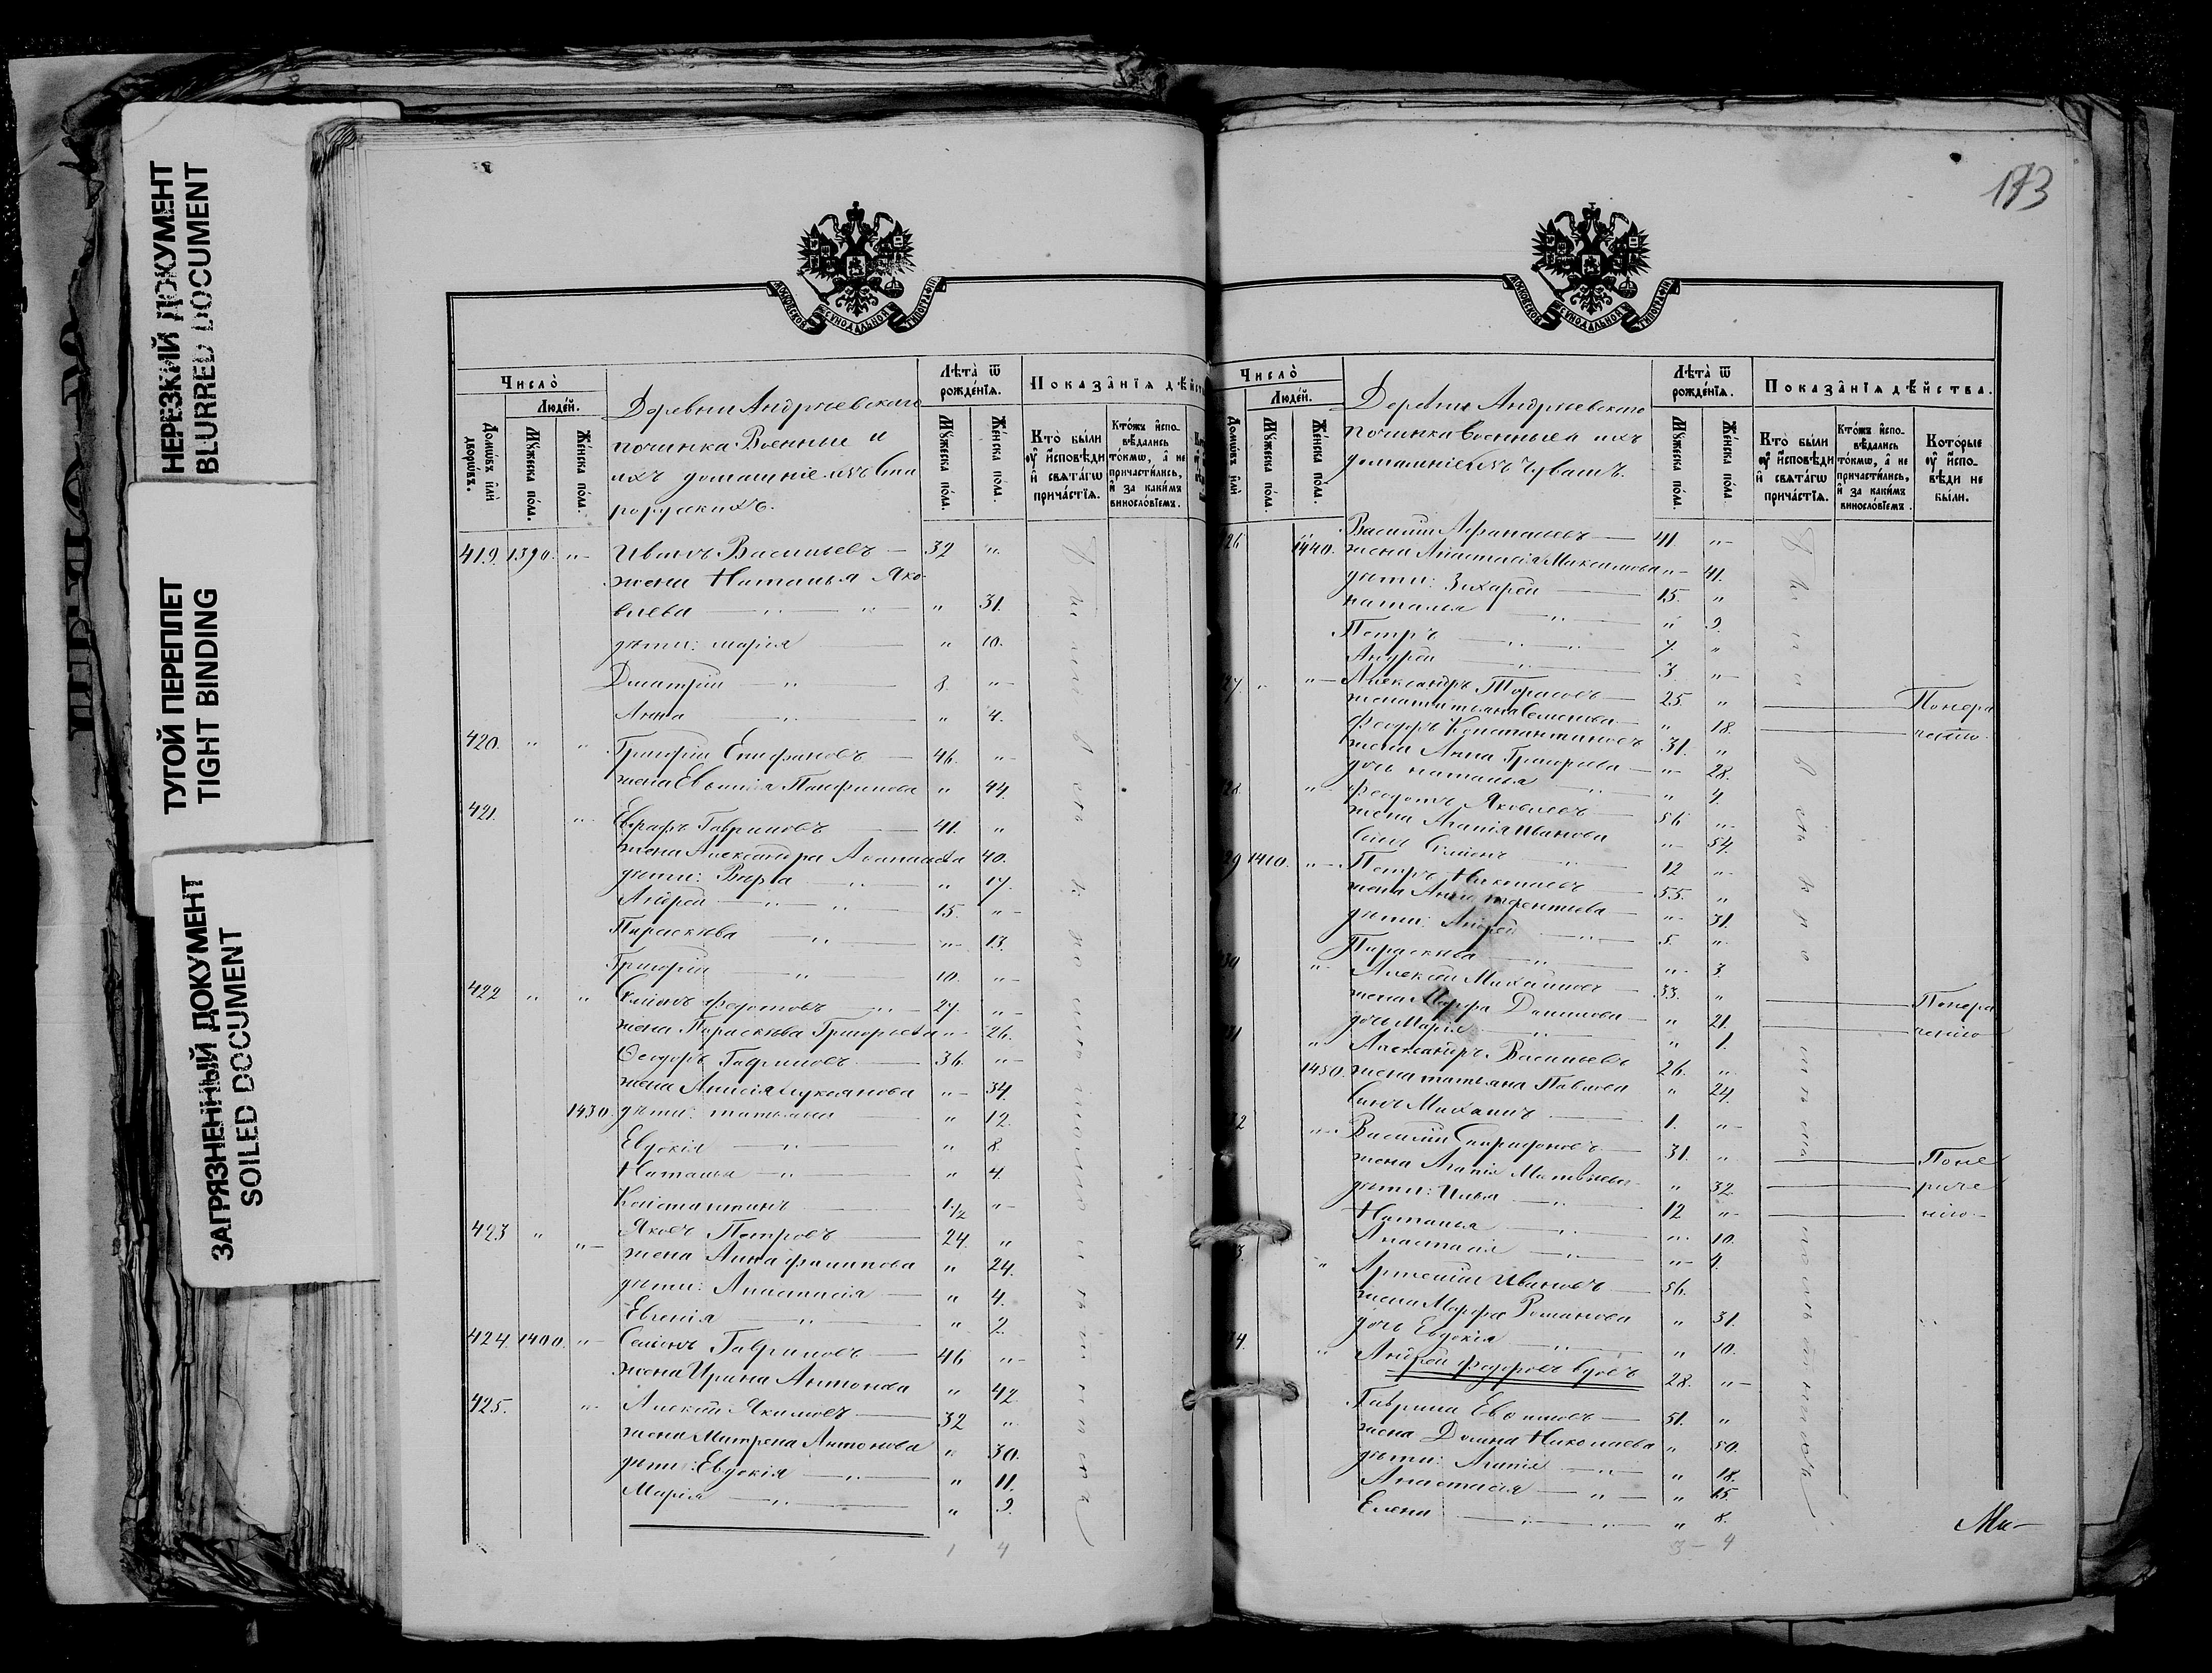 НЕРЕЗКИЙ ДОКУМЕНТ
BLURRED DOCUMENT
ТУГОЙ ПЕРЕПЛЕТ
TIGHT BINDING
ЗАГРЯЗНЕННЫЙ ДОКУМЕНТ
SOILED DOCUMENT
МОСКОВСКОЙ СѴНОДАЛЬНОЙ ТИПОГРАФІИ
Число̀
Люде́й.
Домѡ́въ и҆лѝ дворѡ́въ.
Мꙋ́жеска по́ла.
Же́нска по́ла.
Деревни Андреевскаго
починка Военные и
ихъ домашніе изъ Ста
Лѣта̀ ѿ рожде́нїѧ.
Мꙋ́жеска по́ла.
Же́нска по́ла.
Показа̂нїѧ дѣ́йст
Кто̀ бы́ли ᲂу҆ и҆сповѣди и҆ свѧта́гѡ прича́стїѧ.
Кто́жъ и҆спо- вѣдались то́кмѡ, а҆ не причасти́лись, и҆ за каки́мъ винословїемъ.
419. 1390. "- Иванъ Васильевъ — 32 "
жена Наталья Яко
влева — " — " " 31.
дѣти: Марія — " 10.
Дмитрій — " — 8. "-
Анна — " — " 4.
420. " " Григорій Епифановъ — 46. "-
жена Евѳимія " 44.
421. "- Гавриловъ — 41. "
жена Александра " 40.
дѣти: Вѣра — " — " 17.
Андрей — " — " 15. "-
Параскева — " — "- 13.
Григорій — " — 10. "-
422 " " Семенъ Федотовъ — " — 27. "-
жена Параскева Григорьева "- 26.
Ѳеодоръ Гавриловъ — 36. "-
жена Анисія Лукоянова "- 34.
1430. дѣти: Татьяна " 12.
Евдокія — " — " 8.
Наталья — " — " 4.
Константинъ — 1/2 "-
423 " "- Яковъ Петровъ — 24. "
жена Анна Филипова " 24.
дѣти: Анастасія — " 4.
Евгенія — " — " 2.
424. 1400. "- Семенъ Гавриловъ — 46 "-
жена Ирина Антонова " 42.
425. "- Алексій Якимовъ — 32 "
жена Матрена Антонова " 30.
дѣти: Евдокія — " — " 11.
Марія — " — " 9.
1 4
173
МОСКОВСКОЙ СѴНОДАЛЬНОЙ ТИПОГРАФІИ
Число̀
Люде́й.
Домѡ́въ и҆лѝ
Мꙋ́жеска по́ла.
Же́нска по́ла.
Деревни Андреевскаго
починка Военные и ихъ
домашніе изъ Чувашъ.
Лѣта̀ ѿ рожде́нїѧ.
Мꙋ́жеска по́ла.
Же́нска по́ла.
Показа̂нїѧ дѣ́йства.
Кто̀ бы́ли ᲂу҆ и҆сповѣди и҆ свѧта́гѡ прича́стїѧ.
Кто́жъ и҆спо- вѣдались то́кмѡ, а҆ не причасти́лись, и҆ за каки́мъ винословїемъ.
Кото́рые ᲂу҆ и҆спо- вѣди не бы́ли.
26 1440. Василій Афанасьевъ — 41. "-
жена Анастасія Максимова "- 41.
дѣти: Захарей — 15. "
Наталья — " — " 9.
Петръ — " — " 7. "
Андрей — " — 3 "-
27. " "- Александръ Тарасовъ — 25. " — Понера
жена Татьяна Семенова — " 18. — денію
Феодоръ Константиновъ 31. "
жена Анна Григорьева — "- 28.
дочь Наталья — " — " 4.
28. "- Федотъ Яковлевъ — 56 "-
жена Агапія Иванова "- 54.
Сынъ Семенъ — " — 12 "-
29 1410. "- Петръ Николаевъ — 55. "
жена Анна Терентьева — "- 31.
дѣти: Андрей — " — 5. "
Параскева — " — "- 3.
"- Алексѣй Михайловъ — 33. " — Понера
жена Марфа Данилова — " 21. — денію
дочь Марія — " — " 1.
31 " Александръ Васильевъ 26. "
1450. жена Татьяна Павлова " 24.
Сынъ Михаилъ — 1. "-
32 "- Василій Спиридоновъ — 31. " — Поне
жена Агапія Матвѣева " 32. — раде
дѣти: Илья — " — 12 "- — нію
Наталья — " — "- 10.
Анастасія — " — "- 4.
3. " Артемій Ивановъ — 56.
жена Марфа Романова " 31.
дочь Евдокія — " — " 10.
34. " Андрей Федоровъ вдовъ 28. "-
Гаврила Евѳимовъ — 51. "
жена Домна Николаева " 50.
дѣти: Агапія — " — " 18.
Анастасія — " — " 15.
Елена — " — " — " 8.
3 - 4
Ми-